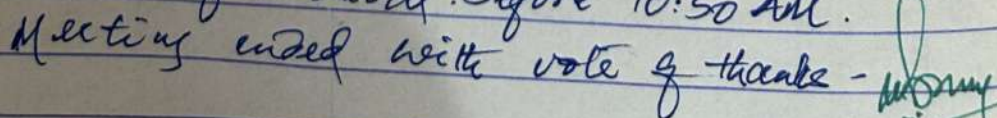 before 10:30 AM.
Meeting ended with vote of thanks -